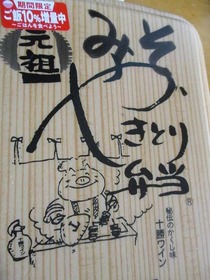 期間限定
ご飯10%増量中
～ごはんを食べよう～
元祖
みそ
やきとり
弁当®
秘伝のかくし味
十勝ワイン